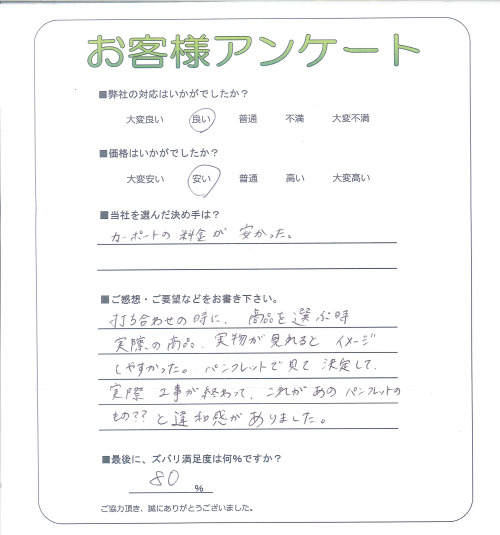 お客様アンケート
■弊社の対応はいかがでしたか？
大変良い 良い 普通 不満 大変不満
■価格はいかがでしたか？
大変安い 安い 普通 高い 大変高い
■当社を選んだ決め手は？
カーポートの料金が安かった。
■ご感想・ご要望などをお書き下さい。
打ち合わせの時に、商品を選ぶ時
実際の商品、実物が見れると イメージ
しやすかった。パンフレットで見て決定して、
実際 工事が終わって、これがあのパンフレットの
もの?? と違和感がありました。
■最後に、ズバリ満足度は何%ですか？
80 %
ご協力頂き、誠にありがとうございました。